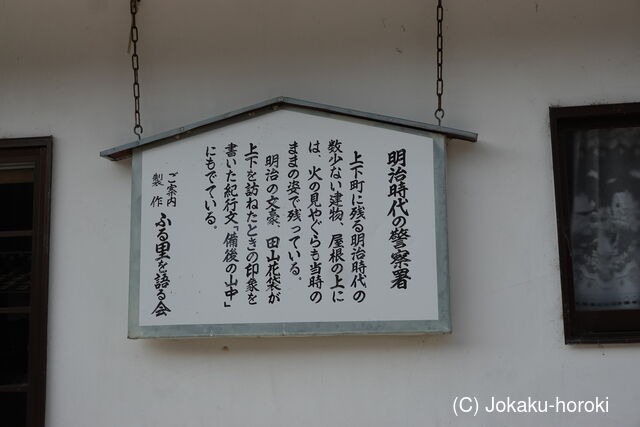 明治時代の警察署
上下町に残る明治時代の
数少ない建物、屋根の上に
は、火の見やぐらも当時の
ままの姿で残っている。
明治の文豪、田山花袋が
上下を訪ねたときの印象を
書いた紀行文「備後の山中」
にもでている。
ご案内
製作 ふる里を語る会
(C) Jokaku-horoki